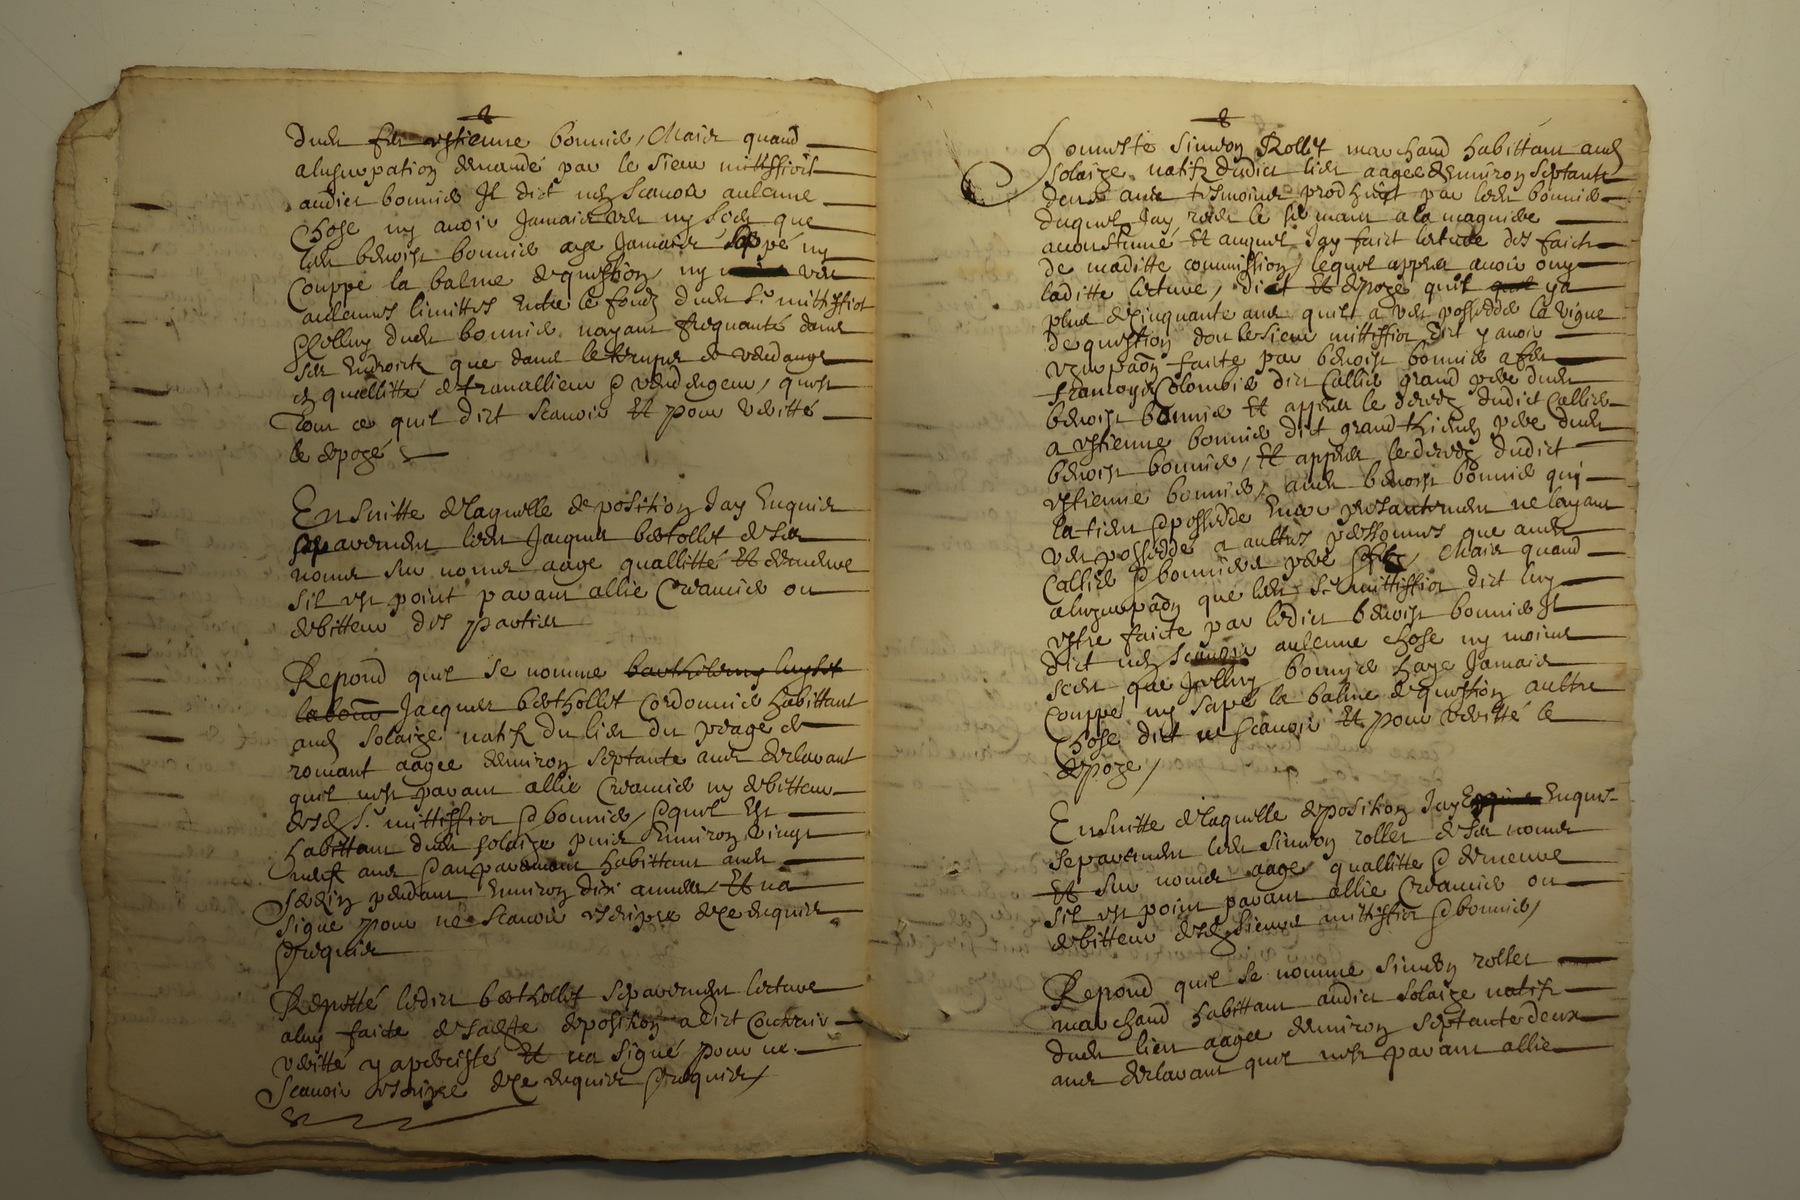 dudit feu estienne bonnier, Mais quand
a lusurpation demandé par le sieur mittiffiot
audict bonnier Il dict ne scavoir aulcune
chose ny avoir Jamais veu ny sceu que
ledit benoist bonnier aye Jamais sappé ny
couppé la balme de question, ny veu
aulcunes limittes entre le fondz dudit Sr mittiffiot
dudit bonnier nayant frequanté dans
ses endroitz que dans le temps de vendange
en quallitté de travallieur vendengeur, quest
Tout ce quil dict scavoir Et pour veritté
le depozé
Ensuitte de laquelle deposition Jay Enquis
separement ledit Jacques bertollet de ses
noms sur noms aage quallitté Et demeure
sil est point parant allié Creancier ou
debitteur des parties
Repond quil se nomme
Jacques berthollet cordonnier habittant
aud solaize natif du lieu du peage de
romant aagee denviron septante ans declarant
quil nest parant allié Creancier ny debitteur
desd Sr mittiffiot bonnier, quil est
habittant dudit solaize puis Environ vingt
neuf ans auparavant habittant audit
Serezin pendant Environ dix annees, Et na
signé pour ne scavoir escripre de ce enquis
requis
Repetté ledict berthollet separement lecture
a luy faicte de sadite deposition a dict contenir
veritté y aperciste Et na signé pour ne
scavoir escripre de ce enquis requis
honneste simeon Rollet marchand habittant aud
solaize natif dudict lieu aagee denviron septante
deux ans tesmoins prodhuict par ledit bonnier
duquel Jay receu le serment a la maniere
accoustumé Et auquel Jay faict lecture des faicts
de maditte commission, lequel appres avoir ouy
laditte lecture, dict Et depoze quil ya
plus de cinquante ans quil a veu posseddé la vigne
de question dont le sieur mittiffiot dict y avoir
uzurpaon faicte par benoist bonnier a feu
francoys Colombier dict Callier grand pere dudit
benoist bonnier Et appres le decedz dudict Callier
a estienne bonnier dict grand thieven pere dudit
benoist bonnier, Et appres le decedz dudict
estienne bonnier, audit benoist bonnier qui
la tient possedde Encor presantement ne layant
veu posseddé a aultres personnes que audit
Callier bonniers pere filz, Mais quand
a luzurpaon que ledit Sr mittiffiot dict luy
estre faicte par ledict benoist bonnier Il
dict ne scavoir aulcune chose ny moins
sceu que Icelluy bonnier haye Jamais
couppé ny sapé la balme de question aultre
chose dict ne scavoir Et pour veritté le
depoze,
Ensuitte de laquelle deposition Jay Enquis
separement ledit simeon rollet de ses noms
sur noms aage quallitté demeure
sil est point parant allié Creancier ou
debitteur desd sieurs mittiffiot bonnier,
Repond quil se nomme simeon rollet
marchand habittant audict solaize natif
dudit lieu aagee denviron septante deux
ans declarant quil nest parant allié